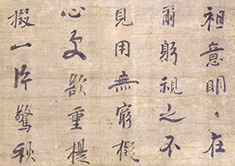 祖意明々在
爾躬視之不
見用無窮擬
心更欲重提
掇一片驚秋